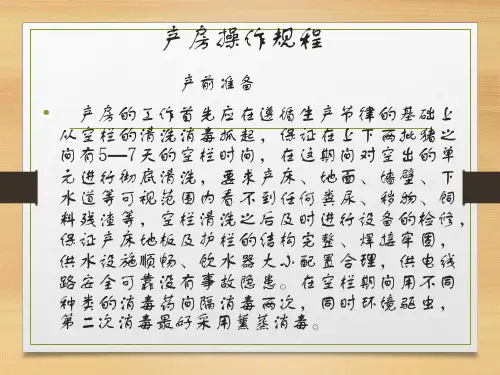 产房操作规程
产前准备
• 产房的工作首先应在遵循生产节律的基础上
从空栏的清洗消毒抓起，保证在上下两批猪之
间有5—7天的空栏时间，在这期间对空出的单
元进行彻底清洗，要求产床、地面、墙壁、下
水道等可视范围内看不到任何粪尿、秽物、饲
料残渣等，空栏清洗之后及时进行设备的检修，
保证产床地板及护栏的结构完整、焊接牢固，
供水设施顺畅、饮水器大小配置合理，供电线
路安全可靠没有事故隐患。在空栏期间用不同
种类的消毒药间隔消毒两次，同时环境驱虫，
第二次消毒最好采用熏蒸消毒。